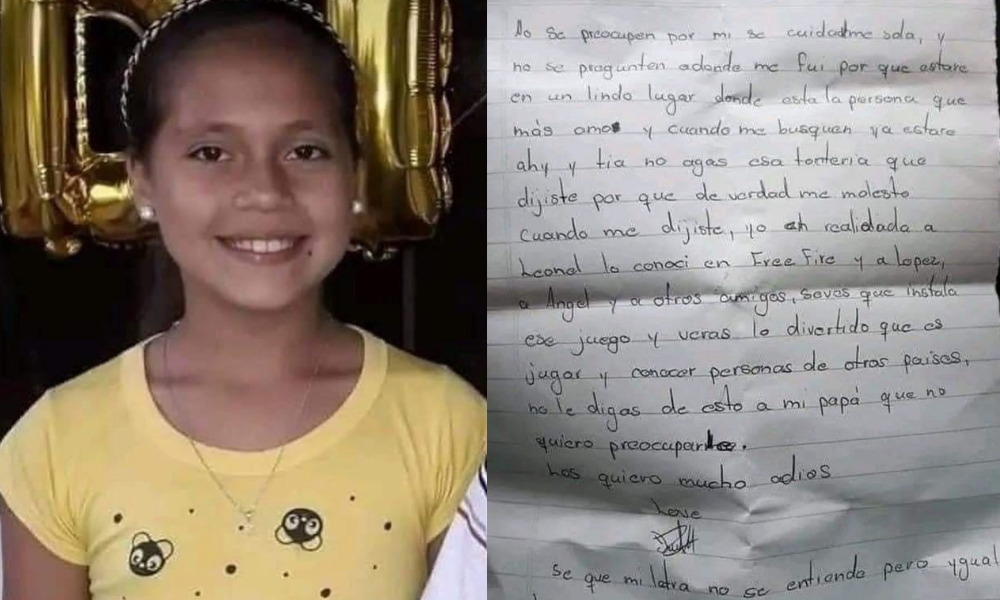 No se preocupen por mi se cuidadme sola, y
no se pregunten adonde me fui por que estare
en un lindo lugar donde esta la persona que
más amo y cuando me busquen ya estare
ahy y tia no agas esa tonteria que
dijiste por que de verdad me molesto
cuando me dijiste, yo en realidada a
Leonel lo conoci en Free Fire y a Lopez,
a Angel y a otros amigos, saves que instala
ese juego y veras lo divertido que es
jugar y conocer personas de otros paises,
no le digas de esto a mi papá que no
quiero preocuparle.
los quiero mucho adios
Love
se que mi letra no se entiende pero ygual